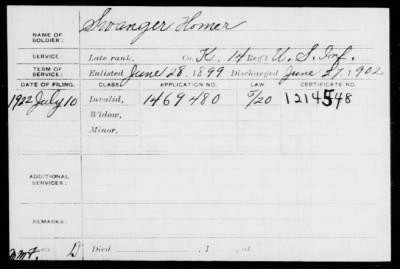 NAME OF SOLDIER: Swanger Homer
SERVICE: Late rank, Co. K, 14 Reg't U. S. Inf.
TERM OF SERVICE: Enlisted June 28, 1899 Discharged June 27, 1902
DATE OF FILING. CLASS. APPLICATION NO. LAW CERTIFICATE NO.
1922 July 10 Invalid, 1469480 1214548
Widow,
Minor,
ADDITIONAL SERVICES:
REMARKS:
Died , 1 , at